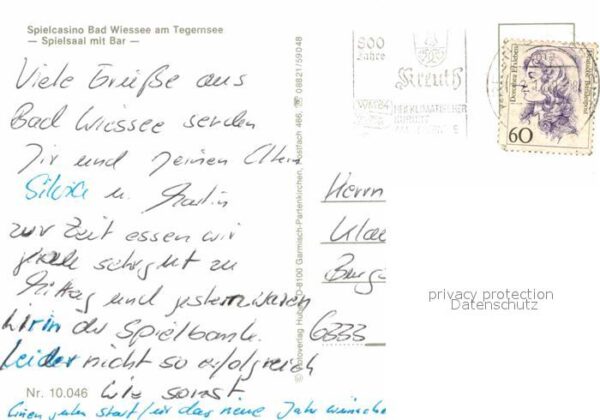 Spielcasino Bad Wiessee am Tegernsee
— Spielsaal mit Bar —
Viele Grüße aus
Bad Wiessee senden
Dir und Deinen Eltern
Silvia u. Martin
zur Zeit essen wir
sehr gut zu
Mittag und gestern waren
wir in der Spielbank.
Leider nicht so erfolgreich
wie sonst.
Einen guten Start für das neue Jahr wünschen
Nr. 10.046
© Fotoverlag Huber, D-8100 Garmisch-Partenkirchen, Postfach 466, ☎ 08821/59048
800
Jahre
Kreuth
HEILKLIMATISCHER
KURORT
Deutsche Bundespost
60
Herrn
6333
privacy protection
Datenschutz